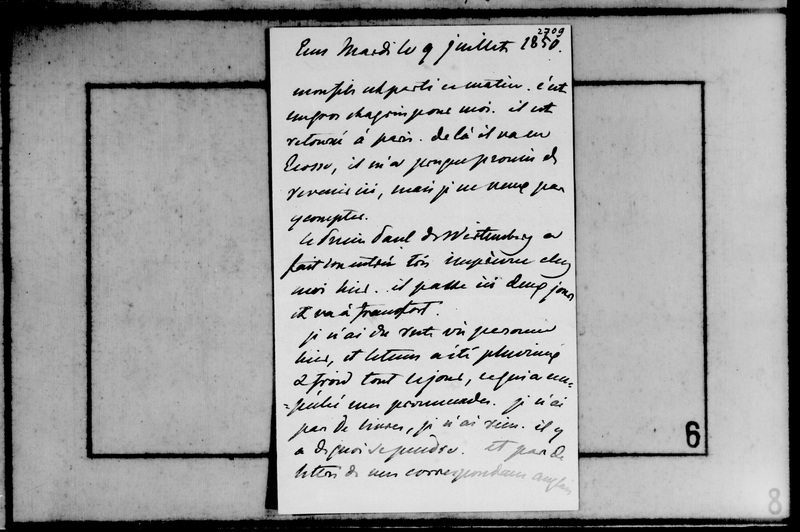 2709
Ems Mardi le 9 juillet 1850.
mon fils est parti ce matin. c'est
un gros chagrin pour moi. il est
retourné à paris. de là il va en
Ecosse, il m'a presque promis de
revenir ici, mais je ne veux pas
y compter.
le Prince Paul de Würtemberg a
fait son entrée très imprévue chez
moi hier. il passe ici deux jours
et va à francfort.
je n'ai du reste vu personne
hier, et le tems a été pluvieux
& froid tout le jour, ce qui a em-
=pêché mes promenades. je n'ai
pas de livres, je n'ai rien. il y
a de quoi se pendre. et pas de
lettres de mes correspondans anglais
6
8